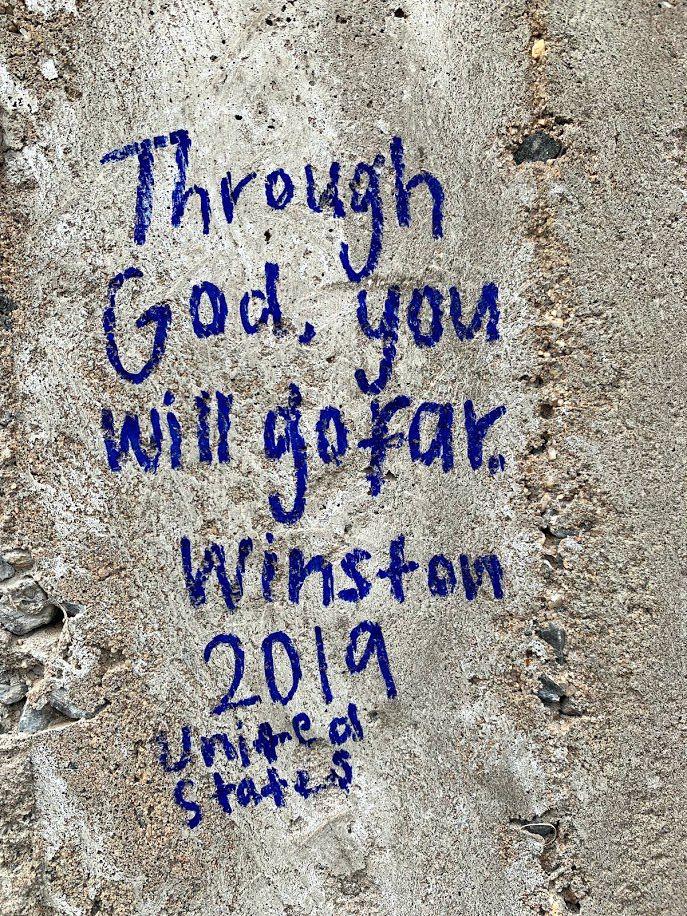 Through
God, you
will go far.
Winston
2019
United
States